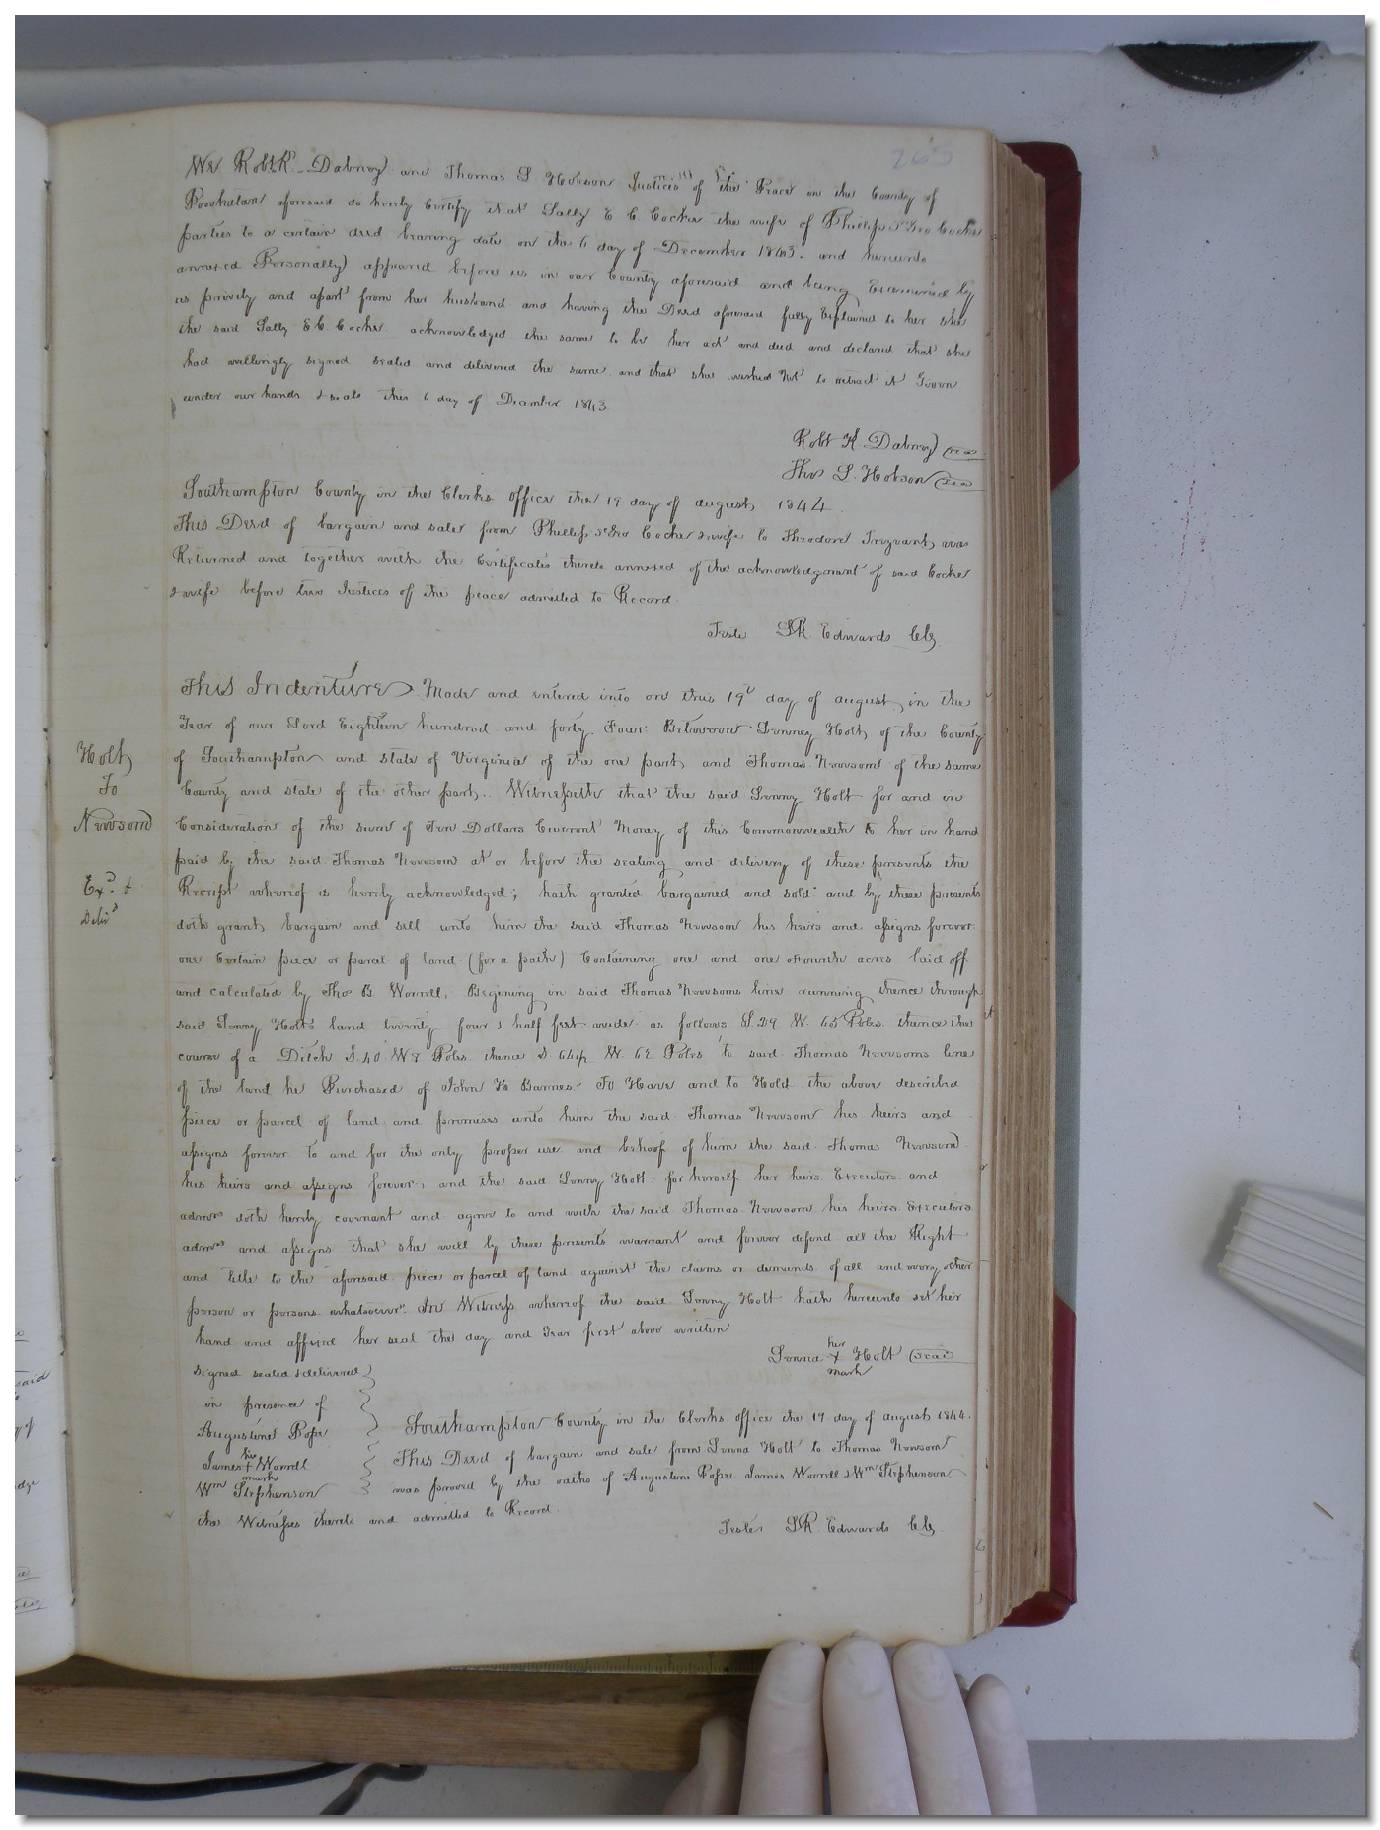 265
We Robt K. Dabney and Thomas S Hobson Justices of the Peace on the County of
Powhatan aforesaid do hereby Certify that Sally E C. Cocke the wife of Phillip St Geo Cocke
parties to a certain deed bearing date on the 6 day of December 1843. and hereunto
annexed Personally appeared before us in our County aforesaid and being Examined by
us privily and apart from her husband and having the Deed aforesaid fully Explained to her she
the said Sally E C Cocke acknowledged the same to be her act and deed and declared that she
had willingly signed sealed and delivered the same and that she wished not to retract it Given
under our hands & seals this 6 day of December 1843
Robt K. Dabney seal
Tho S. Hobson seal
Southampton County in the Clerks office the 19 day of august 1844.
This Deed of bargain and sale from Phillip St Geo Cocke & wife to Theodore Trezvant was
Returned and together with the Certificates thereto annexed of the acknowledgment of said Cocke
& wife before two Justices of the peace admitted to Record.
Teste LR Edwards Clk
This Indenture Made and entered into on this 19th day of august in the
Year of our Lord Eighteen hundred and forty Four Between Lenney Holt of the County
Holt
of Southampton and state of Virginia of the one part and Thomas Newsom of the same
To
County and state of the other part. Witnesseth that the said Lenny Holt for and in
Newsom
Consideration of the sum of Ten Dollars Current Money of this Commonwealth to her in hand
paid by the said Thomas Newsom at or before the sealing and delivery of these presents the
Exd. &
Receipt whereof is hereby acknowledged; hath granted bargained and sold and by these presents
Delivd
doth grant bargain and sell unto him the said Thomas Newsom his heirs and assigns forever
one Certain piece or parcel of land (for a path) Containing one and one Fourth acres laid off
and calculated by Tho B. Worrell, Begining in said Thomas Newsoms line running thence through
said Lenny Holts land twenty four & half feet wide as follows S. 29 W. 65 Poles thence the
course of a Ditch S. 40 W 8 Poles thence S 64½ W. 62 Poles to said Thomas Newsoms line
of the land he Purchased of John Barnes. To Have and to Hold the above described
piece or parcel of land and premises unto him the said Thomas Newsom his heirs and
assigns forever to and for the only proper use and behoof of him the said Thomas Newsom
his heirs and assigns forever, and the said Lenny Holt for herself her heirs Executors and
admrs doth hereby covenant and agree to and with the said Thomas Newsom his heirs Executors
admrs and assigns that she will by these presents warrant and forever defend all the Right
and title to the aforesaid piece or parcel of land against the claims or demands of all and every other
person or persons whatsoever. In Witness whereof the said Lenny Holt hath hereunto set her
hand and affixed her seal the day and Year first above written
her
Lenna + Holt seal
mark
signed sealed & delivered
in presence of
Augustine Pope
his
James + Worrell
mark
Wm Stephenson
Southampton County in the Clerks office the 19 day of august 1844.
This Deed of bargain and sale from Lenna Holt to Thomas Newsom
was proved by the oaths of Augustine Pope James Worrell & Wm Stephenson
the Witnesses thereto and admitted to Record.
Teste LR Edwards Clk